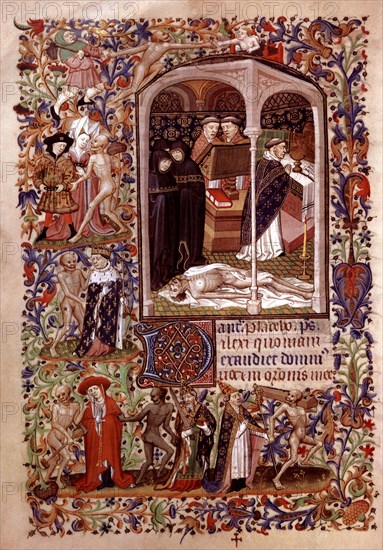 ant. Placebo. ps.
Dilexi quoniam
exaudiet domin'
vocem orationis mee